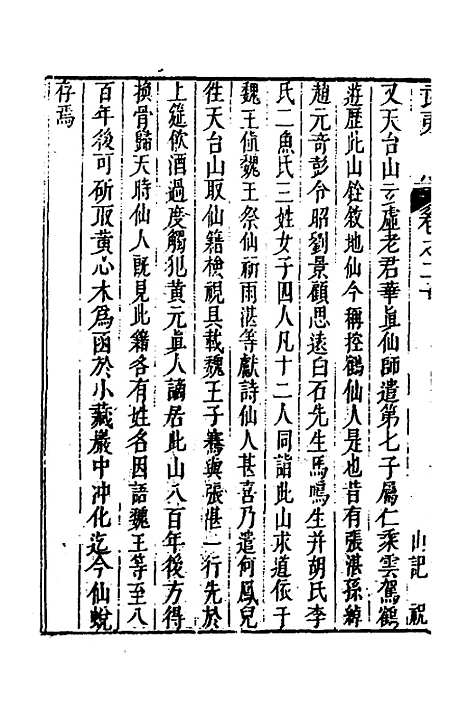 又天台山玄虛老君華眞仙師遣第七子屬仁乘雲駕鶴
遊歷此山銓敘地仙今稱控鶴仙人是也昔有張湛孫綽
趙元奇彭令昭劉景顧思遠白石先生馬鳴生并胡氏李
氏二魚氏三姓女子四人凡十二人同詣此山求道依于
魏王値魏王祭仙祈雨湛等獻詩仙人甚喜乃遣何鳳兒
徃天台山取仙籍檢視具載魏王子騫與張湛一行先於
上筵飲酒過度觸犯黃元眞人謫居此山八百年後方得
換骨歸天時仙人既見此籍各有姓名因語魏王等至八
百年後可斫取黃心木爲函於小藏巖中冲化迄今仙蛻
存焉
卷之二十
山記